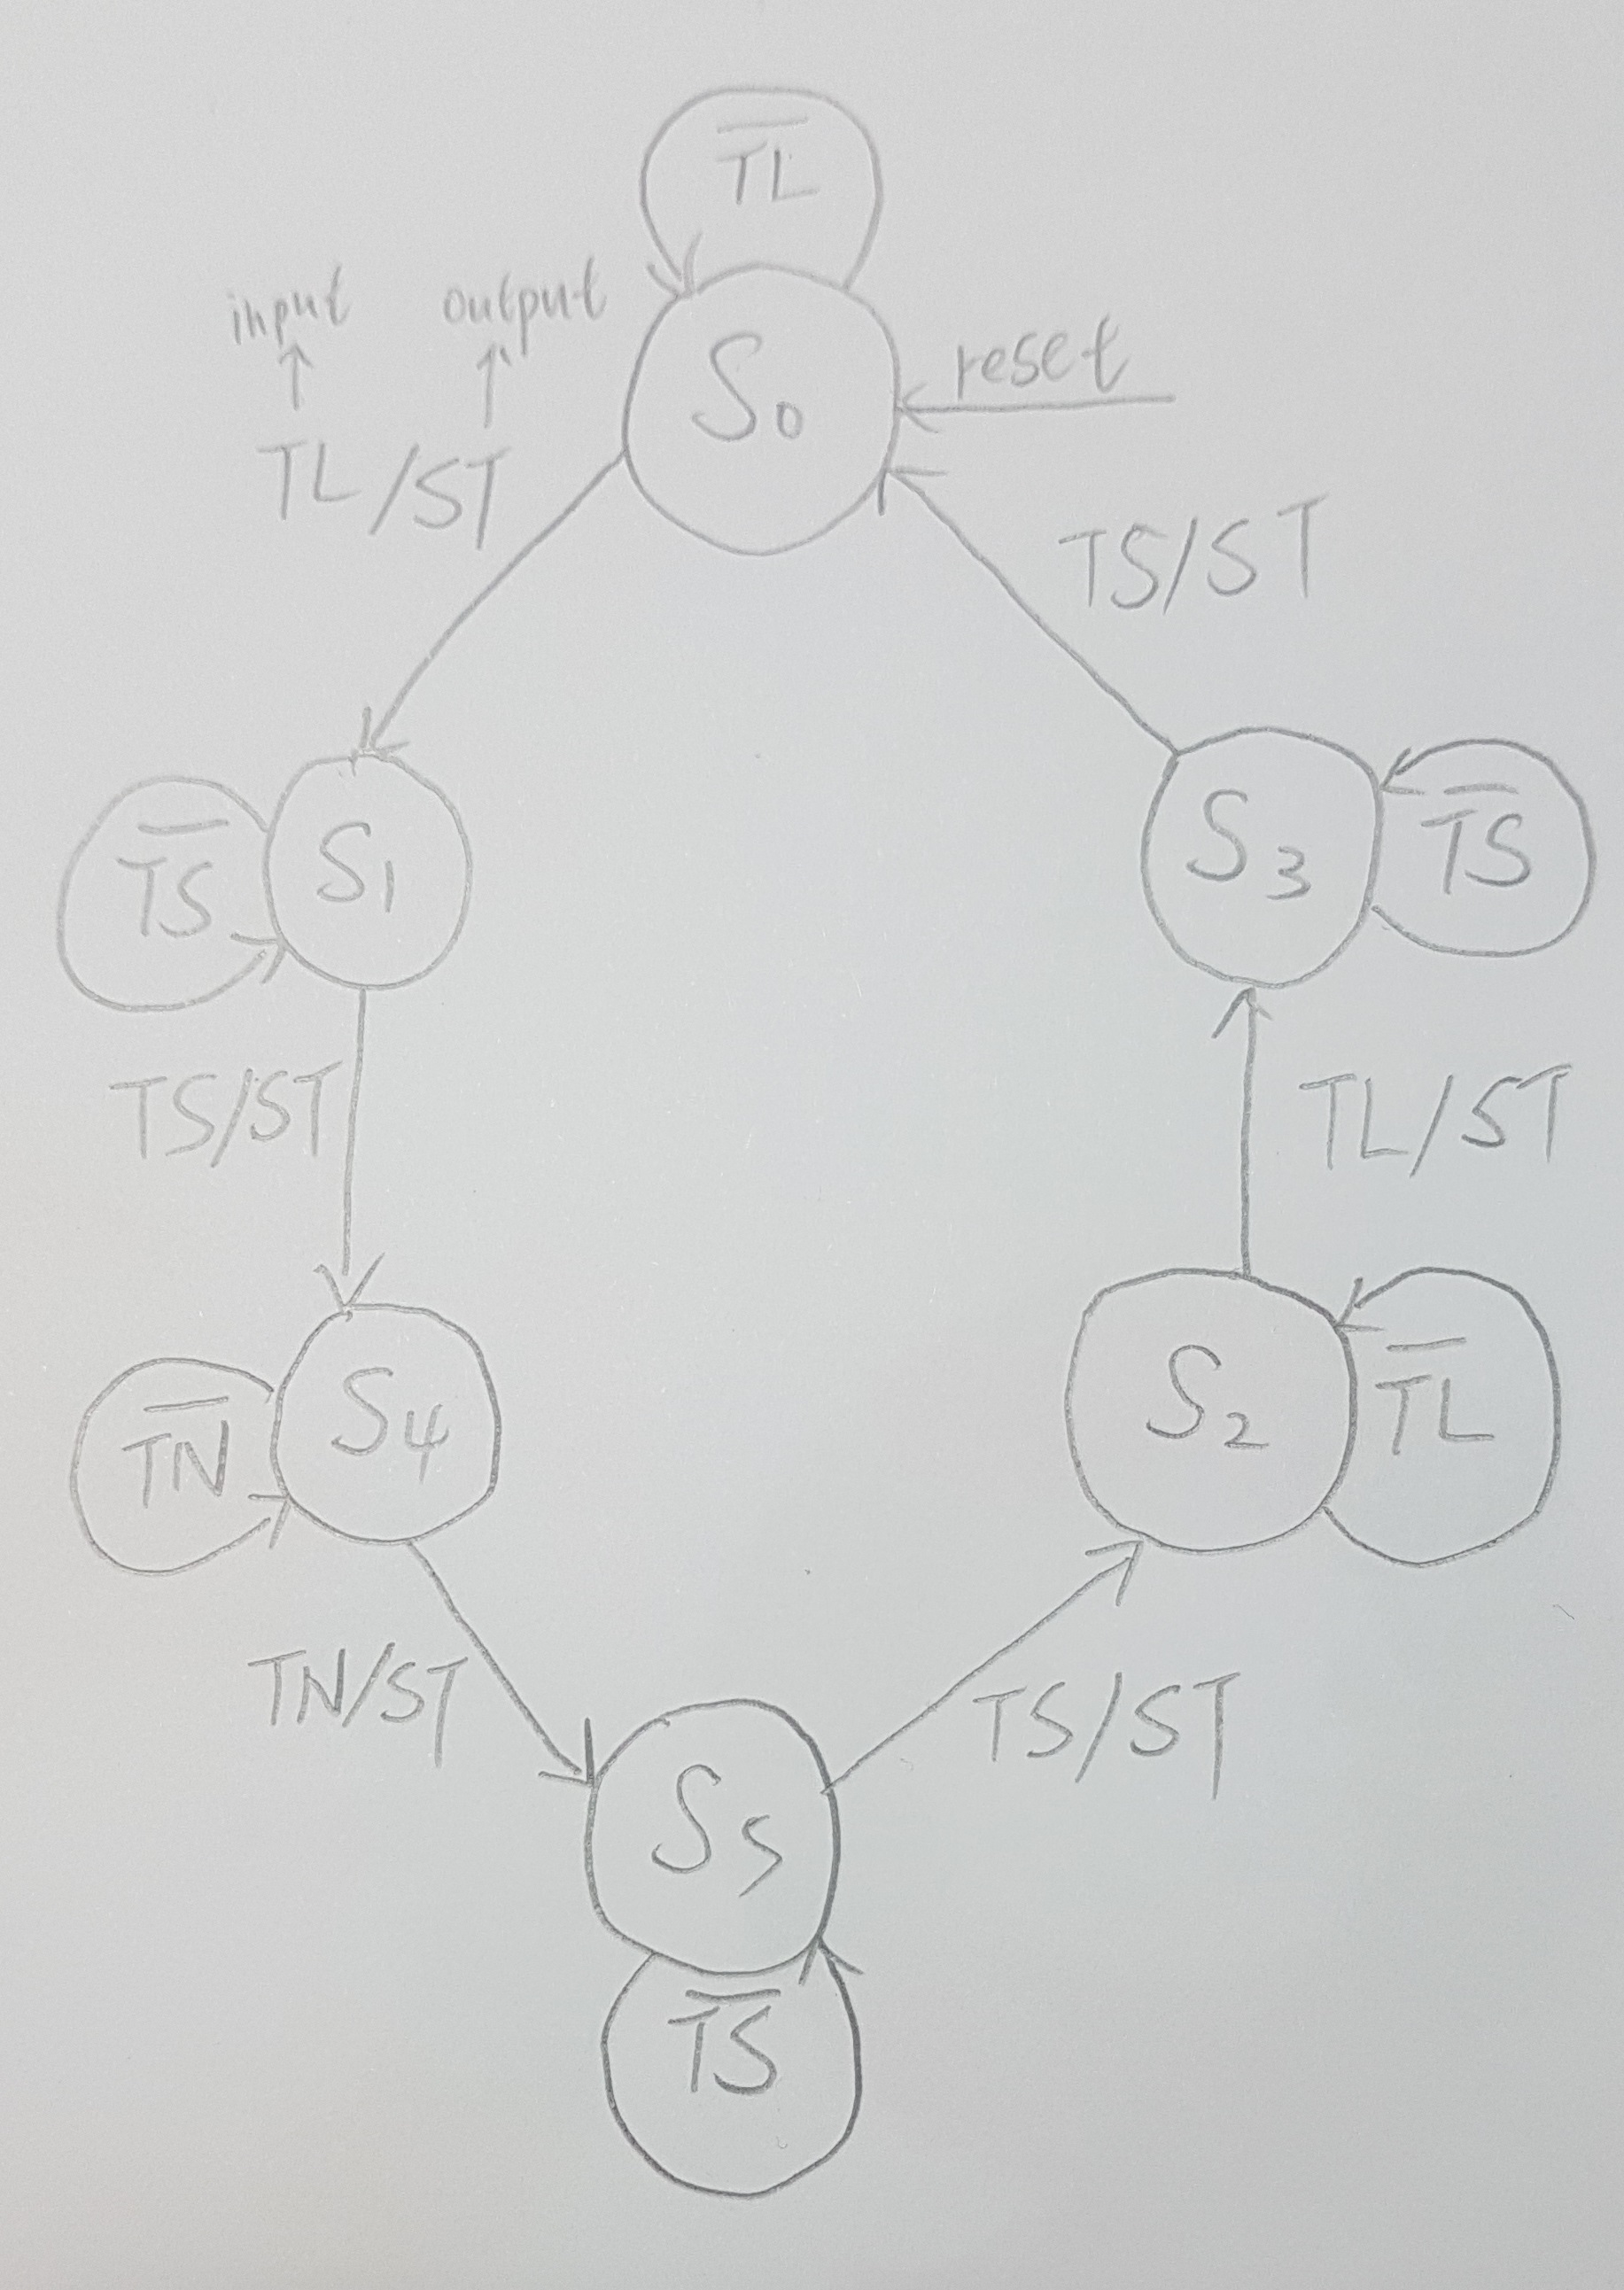 T̅L̅
input output
S₀
reset
TL/ST
TS/ST
T̅S̅
S₁
S₃
T̅S̅
TS/ST
TL/ST
T̅N̅
S₄
S₂
T̅L̅
TN/ST
TS/ST
S₅
T̅S̅